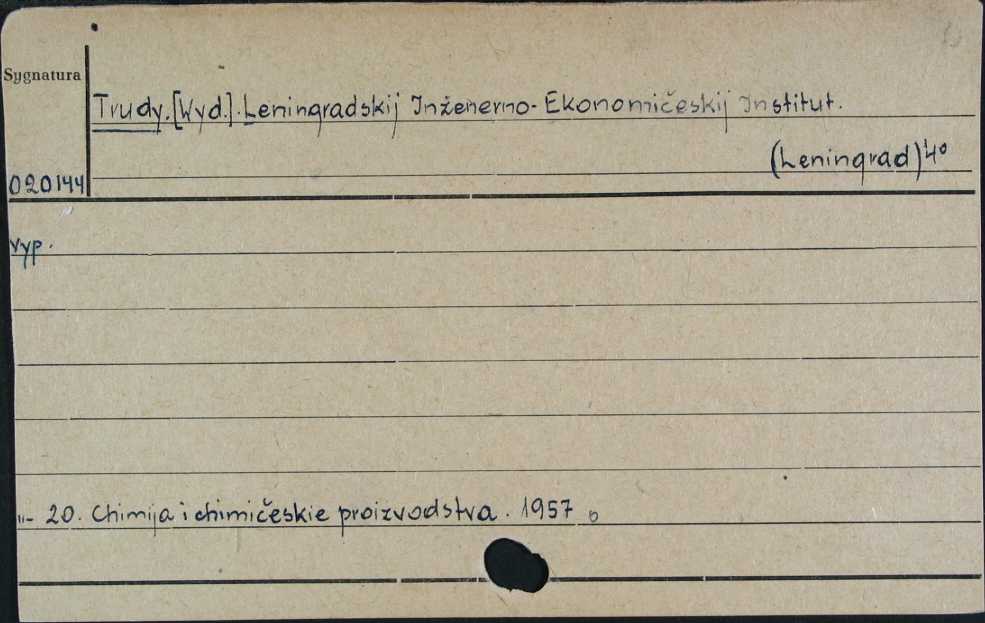 Sygnatura
Trudy. [Wyd.]. Leningradskij Inženerno-Ekonomičeskij Institut.
(Leningrad) 4°
020144
vyp.
"- 20. Chimija i chimičeskie proizvodstva. 1957